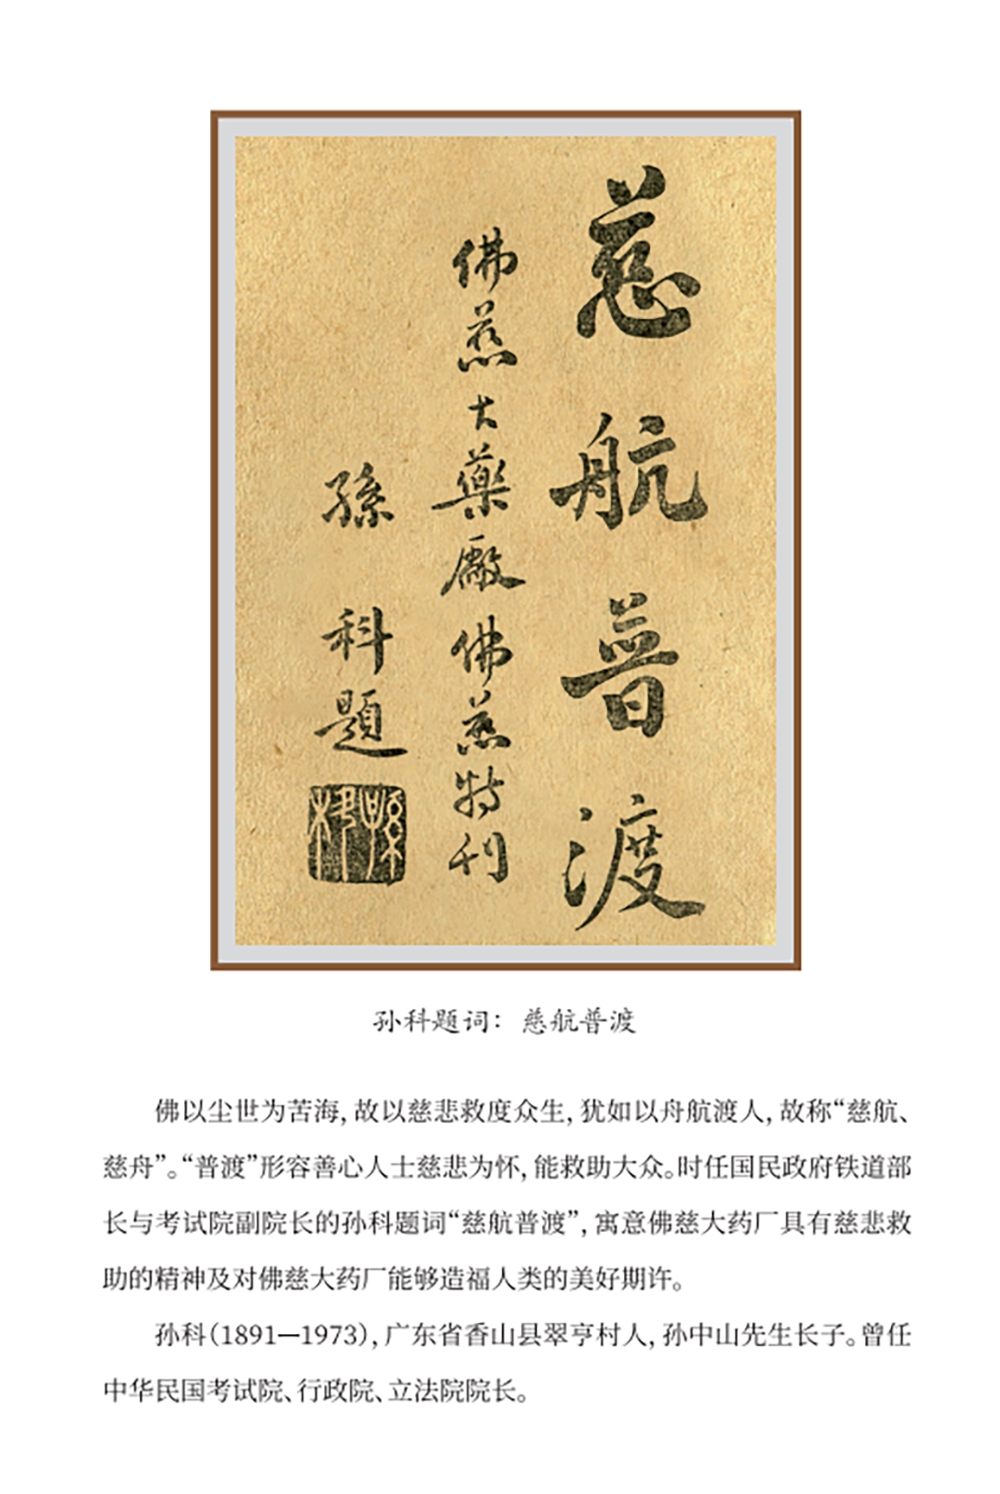 慈航普渡
佛慈大藥廠佛慈特刊
孫科題
孫科
孙科题词：慈航普渡
佛以尘世为苦海，故以慈悲救度众生，犹如以舟航渡人，故称“慈航、
慈舟”。“普渡”形容善心人士慈悲为怀，能救助大众。时任国民政府铁道部
长与考试院副院长的孙科题词“慈航普渡”，寓意佛慈大药厂具有慈悲救
助的精神及对佛慈大药厂能够造福人类的美好期许。
孙科（1891—1973），广东省香山县翠亨村人，孙中山先生长子。曾任
中华民国考试院、行政院、立法院院长。